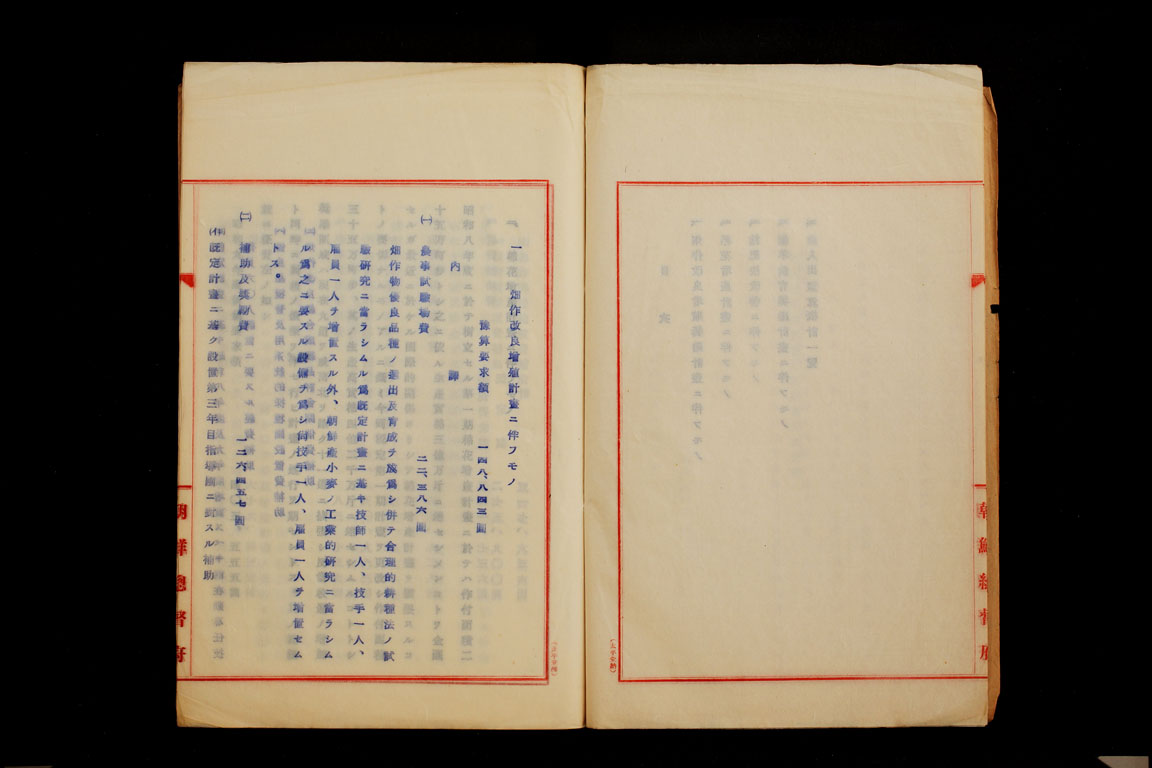 一 畑作改良増殖計畫ニ伴フモノ
豫算要求額 一四八、八四三圓
內譯
(一) 農事試驗場費 二二、三八六圓
畑作物優良品種ノ選出及育成ヲ爲シ併テ合理的耕種法ノ試
驗研究ニ當ラシムル爲既定計畫ニ基キ技師一人、技手一人、
雇員一人ヲ增置スル外、朝鮮產小麥ノ工藝的研究ニ當ラシム
ル爲之ニ要スル設備ヲ爲シ尙技手一人、雇員一人ヲ增置セム
トス。
(二) 補助及奬勵費 一二六、四五七圓
(イ)既定計畫ニ基ク設置第三年目指導圃ニ要スル補助
朝鮮總督府
朝鮮總督府